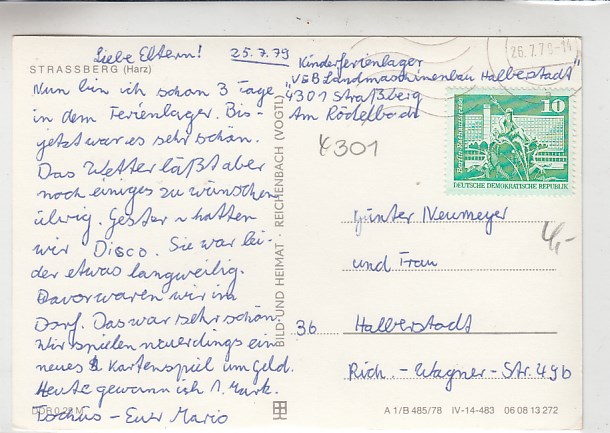 Liebe Eltern! 25.7.79
STRASSBERG (Harz)
Nun bin ich schon 3 Tage
in dem Ferienlager. Bis-
jetzt war es sehr schön.
Das Wetter läßt aber
noch einiges zu wünschen
übrig. Gestern hatten
wir Disco. Sie war lei-
der etwas langweilig.
Davor waren wir im
Dorf. Das war sehr schön.
Wir spielen neuerdings ein
neues Kartenspiel um Geld.
Heute gewann ich 1. Mark.
Tschüs - Euer Mario
DDR 0,20 M
BILD UND HEIMAT · REICHENBACH (VOGTL)
Kinderferienlager
"VEB Landmaschinenbau Halberstadt"
4301 Straßberg
Am Rödelbach
4301
26.7.79-11
10
Berlin-Rathausstrasse
DEUTSCHE DEMOKRATISCHE REPUBLIK
4,-
Günter Neumeyer
und Frau
36 Halberstadt
Rich.-Wagner-Str. 49b
A 1/B 485/78 IV-14-483 06 08 13 272